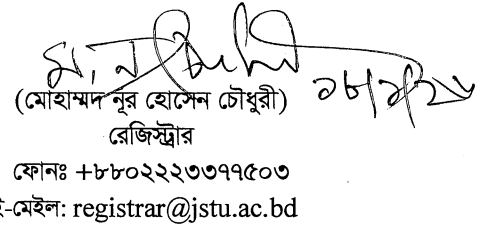 (মোহাম্মদ নূর হোসেন চৌধুরী)
রেজিস্ট্রার
ফোনঃ +৮৮০২২২৩৩৭৭৫০৩
ই-মেইল: registrar@jstu.ac.bd